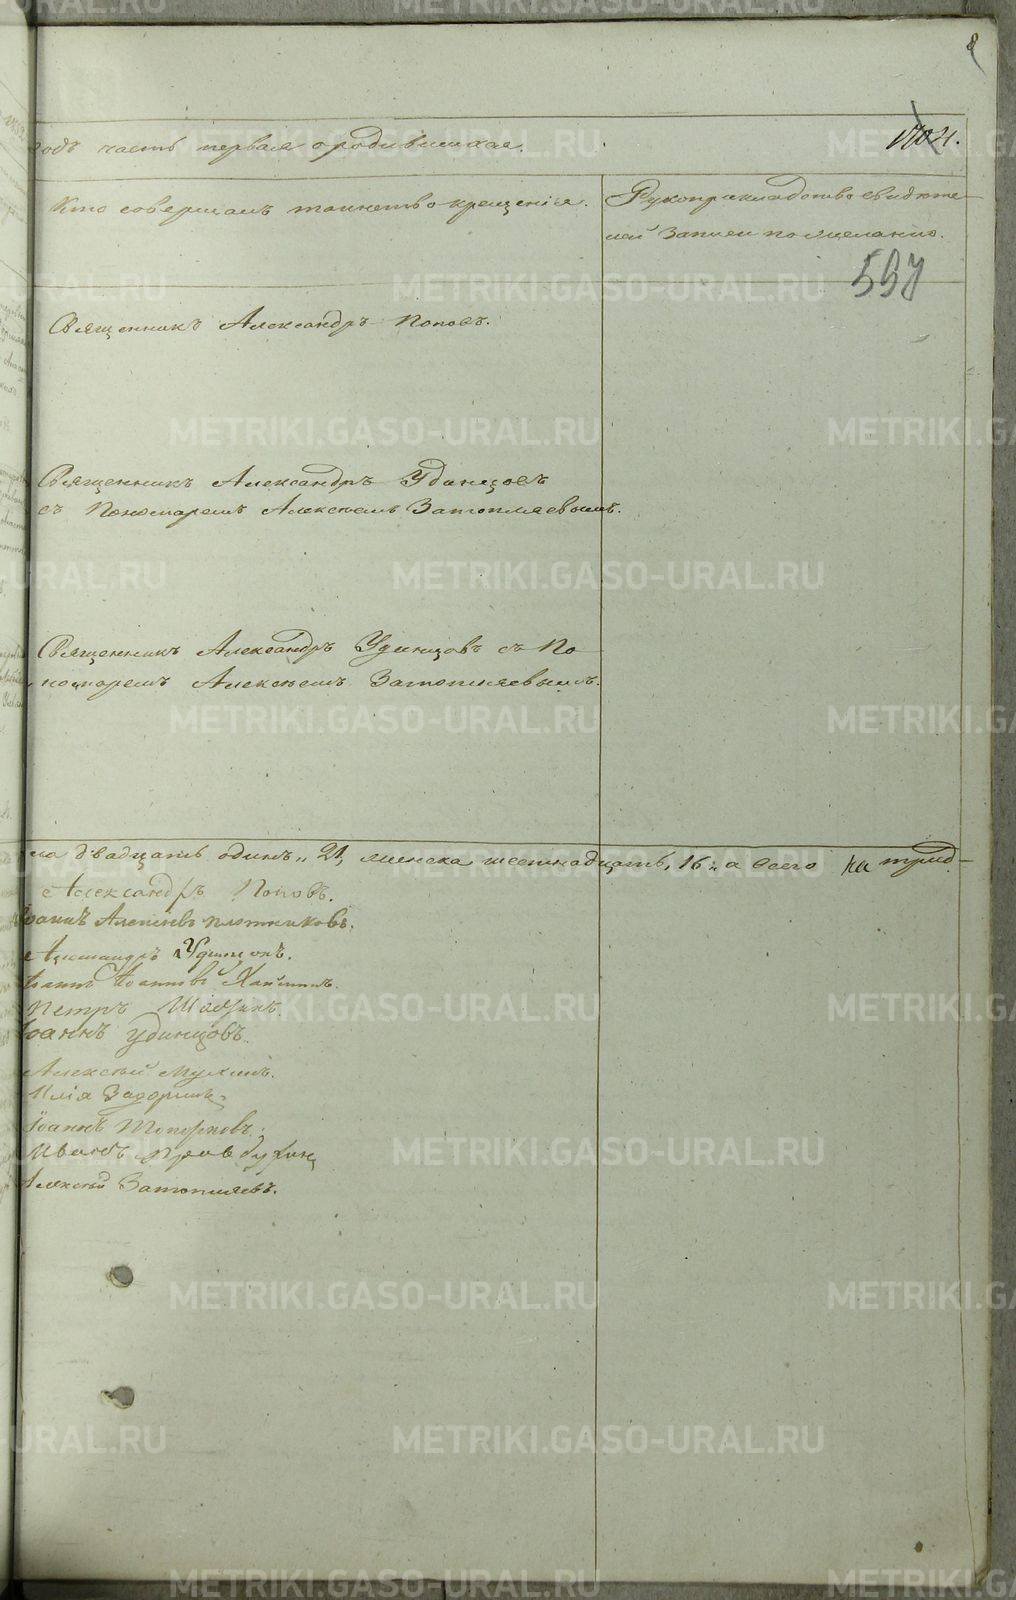 8
годъ часть первая о родившихся.
1021.
Кто совершалъ таинство крещенія.
Рукоприкладство свидѣте-
лей записи по желанію.
597
Священникъ Александръ Поповъ.
Священникъ Александръ Удинцовъ
съ Пономаремъ Алексѣемъ Затопляевымъ.
Священникъ Александръ Удинцовъ съ По
номаремъ Алексѣемъ Затопляевымъ.
двадцать одинъ, 21, женска шестнадцать, 16, а всего на трид-
Александръ Поповъ.
Іоаннъ Плотниковъ.
Александръ Удинцовъ.
Іоаннъ
Петръ
Іоаннъ Удинцовъ.
Алексѣй Мухинъ.
Илія Задоринъ
Іоаннъ Топорковъ.
Иванъ
Алексѣй Затопляевъ.
METRIKI.GASO-URAL.RU